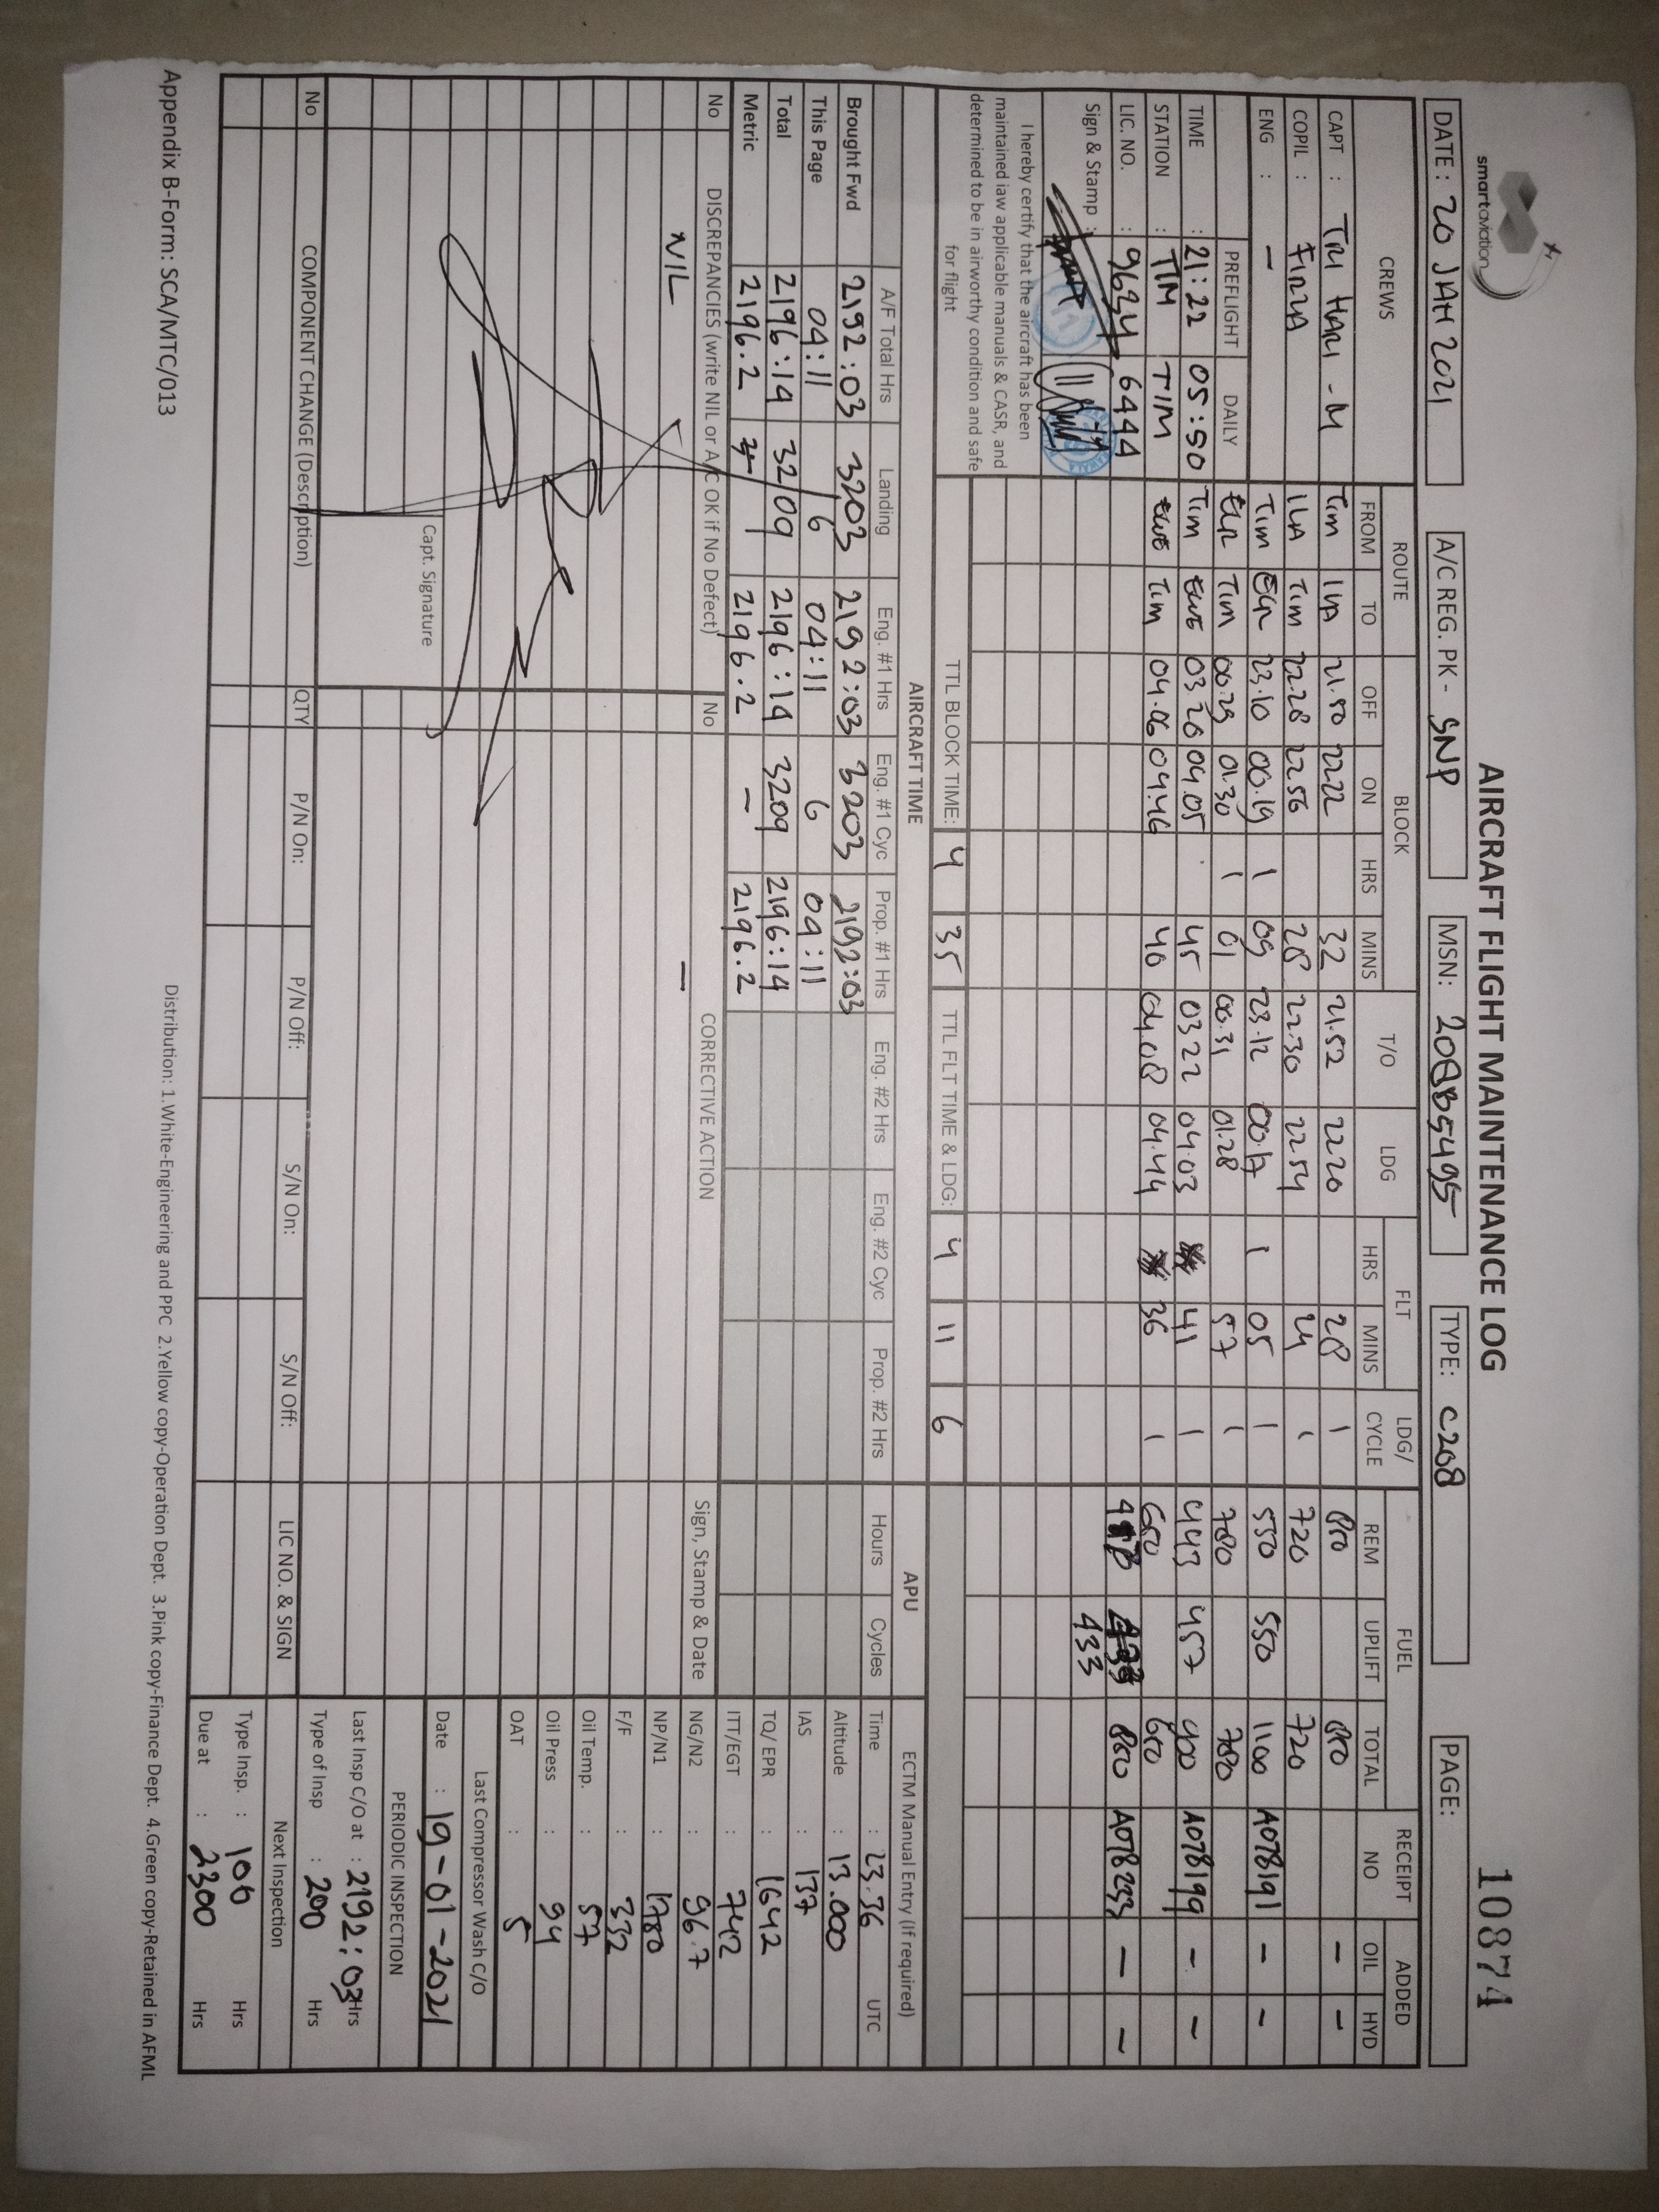 smartaviation
AIRCRAFT FLIGHT MAINTENANCE LOG
10874
DATE : 20 JAN 2021 A/C REG. PK - SNP MSN: 208B5495 TYPE: C208 PAGE:
CREWS ROUTE BLOCK T/O LDG FLT LDG/ CYCLE FUEL RECEIPT NO ADDED
FROM TO OFF ON HRS MINS HRS MINS REM UPLIFT TOTAL OIL HYD
CAPT : TRI HARI - M TIM ILA 21.50 2222 32 21.52 2220 28 1 - -
COPIL : FIRZA ILA TIM 22.28 2256 28 22.30 2254 24 1 720 720
ENG : - TIM 23.10 00.19 1 09 23.12 00.17 1 05 1 550 550 1100 A078191 - -
PREFLIGHT DAILY TIM 00.29 01.30 1 01 00.31 01.28 57 1 780 780
TIME : 21:22 05:50 TIM 03 20 04.05 45 03 22 04.03 41 1 443 457 900 A078199 - -
STATION : TIM TIM TIM 04.06 04.46 40 04.08 04.44 36 1 650 650
LIC. NO. : 9624 6444 A078233 - -
Sign & Stamp : 433
I hereby certify that the aircraft has been
maintained iaw applicable manuals & CASR, and
determined to be in airworthy condition and safe
for flight
TTL BLOCK TIME: 4 35 TTL FLT TIME & LDG: 4 11 6
AIRCRAFT TIME APU
A/F Total Hrs Landing Eng. #1 Hrs Eng. #1 Cyc Prop. #1 Hrs Eng. #2 Hrs Eng. #2 Cyc Prop. #2 Hrs Hours Cycles
Brought Fwd 2192:03 3203 2192:03 3203 2192:03
This Page 04:11 6 04:11 6 04:11
Total 2196:14 3209 2196:14 3209 2196:14
Metric 2196.2 2196.2 - 2196.2
No DISCREPANCIES (write NIL or A/C OK if No Defect) No CORRECTIVE ACTION Sign, Stamp & Date
NIL -
Capt. Signature
ECTM Manual Entry (If required)
Time : 23.36 UTC
Altitude : 13.000
IAS : 137
TQ/ EPR : 1642
ITT/EGT : 742
NG/N2 : 96.7
NP/N1 : 1780
F/F : 332
Oil Temp. : 57
Oil Press : 94
OAT : 5
Last Compressor Wash C/O
Date : 19-01-2021
PERIODIC INSPECTION
Last Insp C/O at : 2192:03 Hrs
Type of Insp : 200 Hrs
Next Inspection
Type Insp. : 100 Hrs
Due at : 2300 Hrs
No COMPONENT CHANGE (Description) QTY P/N On: P/N Off: S/N On: S/N Off: LIC NO. & SIGN
Appendix B-Form: SCA/MTC/013
Distribution: 1.White-Engineering and PPC 2.Yellow copy-Operation Dept. 3.Pink copy-Finance Dept. 4.Green copy-Retained in AFML